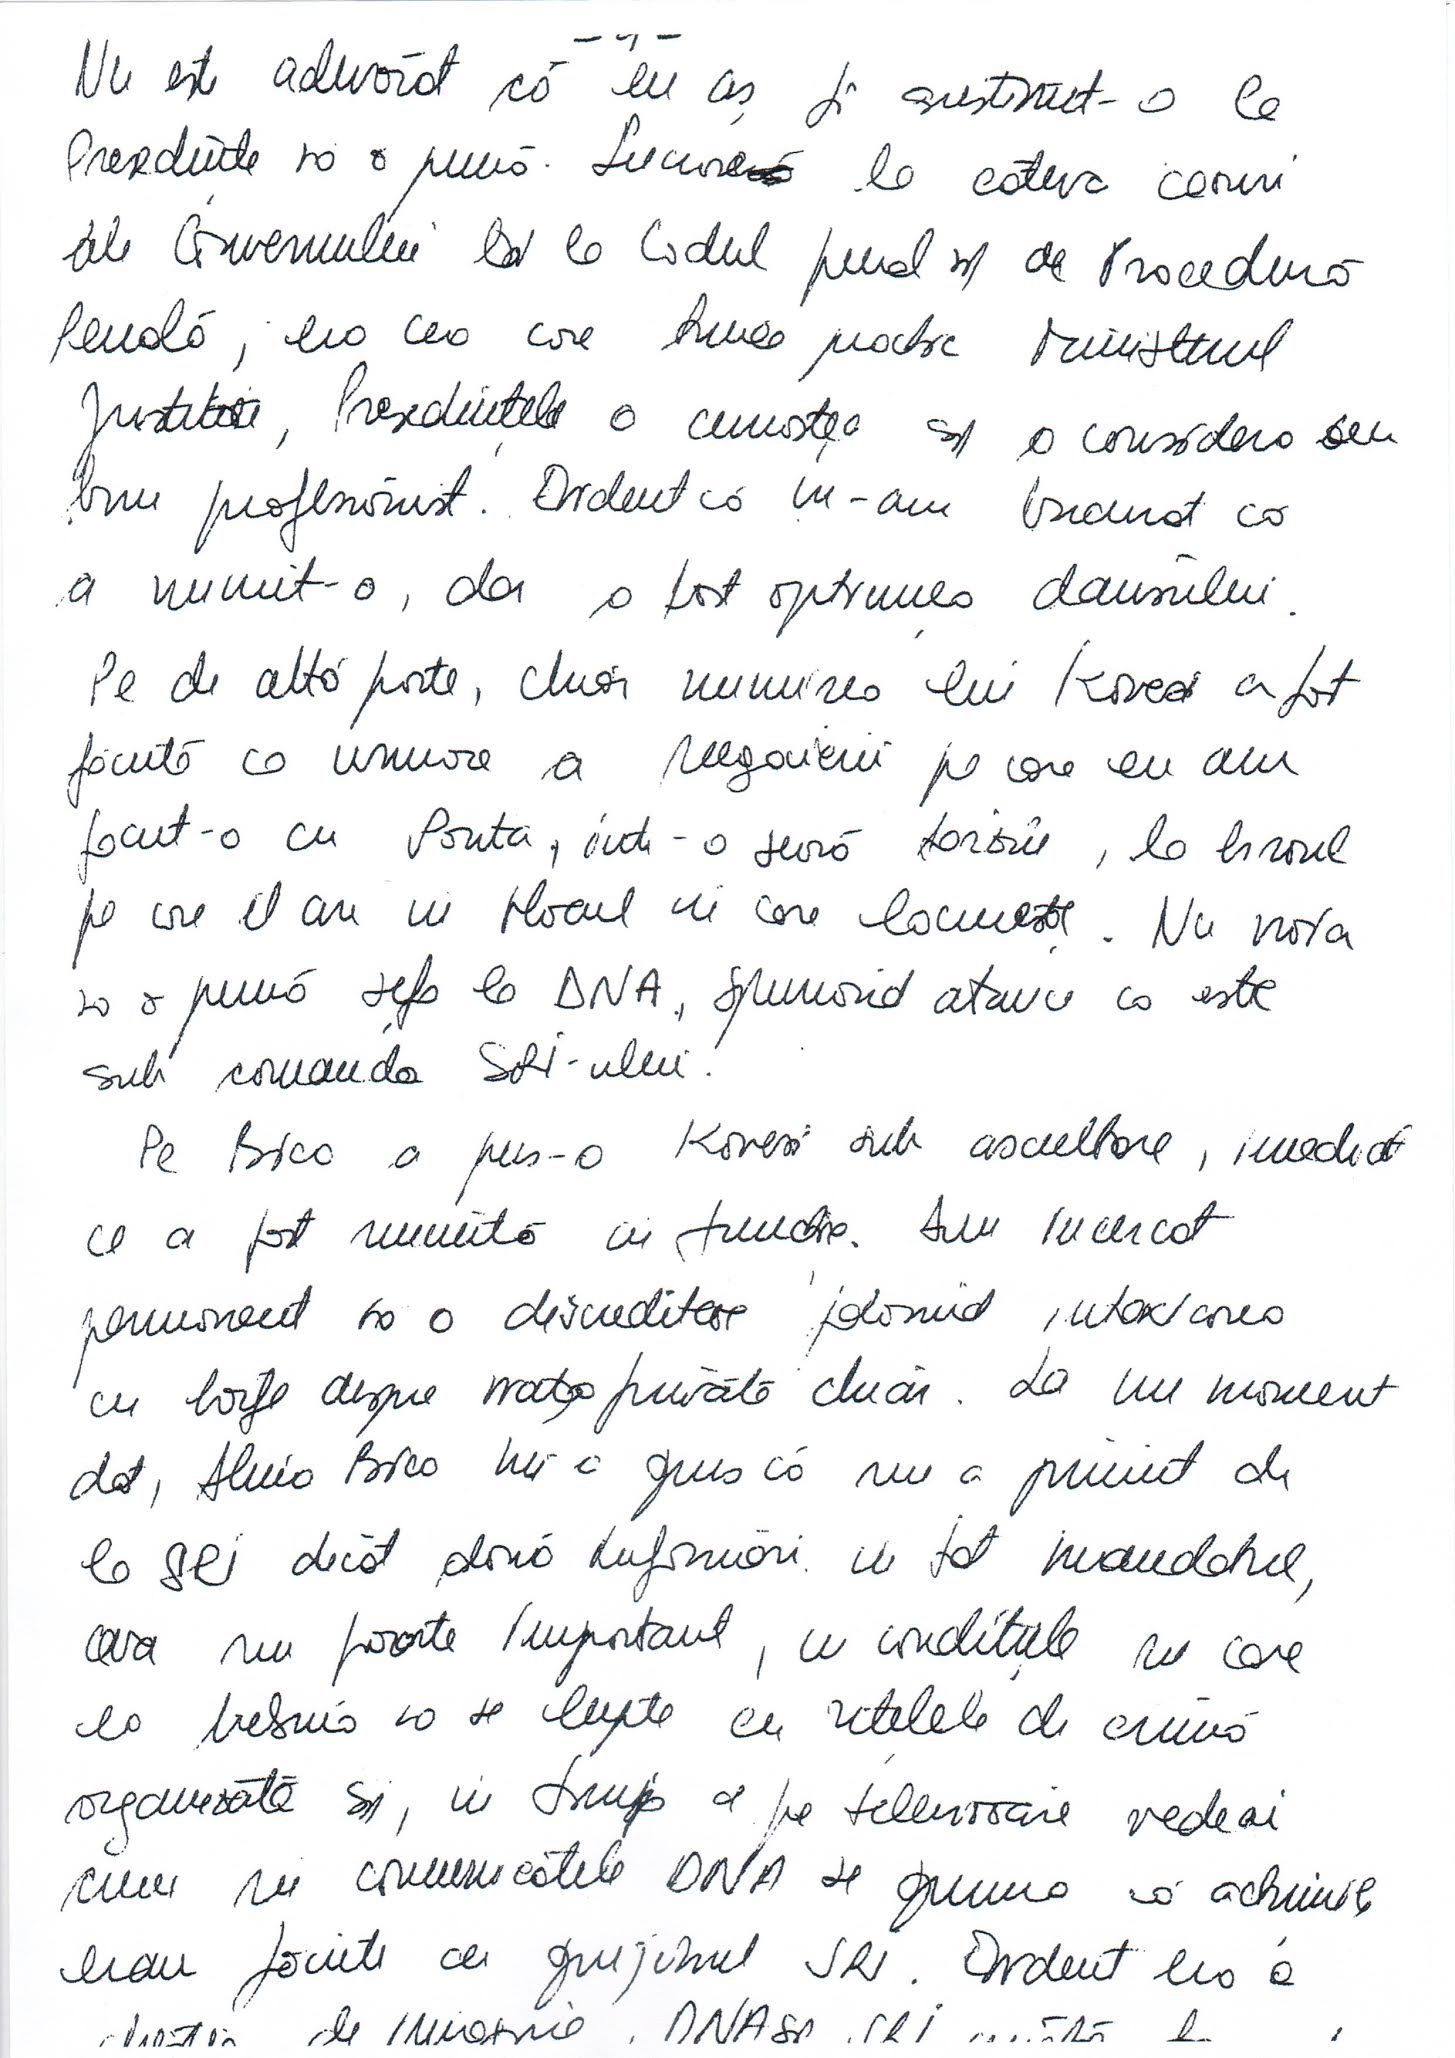 -4-
Nu este adevărat că eu aș fi susținut-o la
Președinte să o pună. Lucrase la câteva legi
ale Guvernului la Codul penal și de Procedură
Penală, era cea care ținea practic Ministerul
Justiției, Președintele o cunoștea și o considera un
bun profesionist. Evident că m-am bucurat că
a numit-o, dar a fost opțiunea dânsului.
Pe de altă parte, chiar numirea lui Kovesi a fost
făcută ca urmare a negocierii pe care eu am
făcut-o cu Ponta, într-o seară târziu, la biroul
pe care îl are în blocul în care locuiește. Nu voia
să o pună șefă la DNA, spunând atunci că este
sub comanda SRI-ului.
Pe Bica a pus-o Kovesi sub ascultare, imediat
ce a fost numită în funcție. Au încercat
permanent să o discrediteze folosind intoxicarea
cu bârfe despre viața privată chiar. La un moment
dat, Alina Bica mi-a spus că nu a primit de
la SRI decât două informări în tot mandatul,
ceva nu foarte important, în condițiile în care
ea trebuia să se lupte cu rețelele de crimă
organizată și, în timp ce pe televizoare vedeai
cum în comunicatele DNA se spunea că acțiunile
erau făcute cu sprijinul SRI. Evident era o
de imagine. DNA și SRI